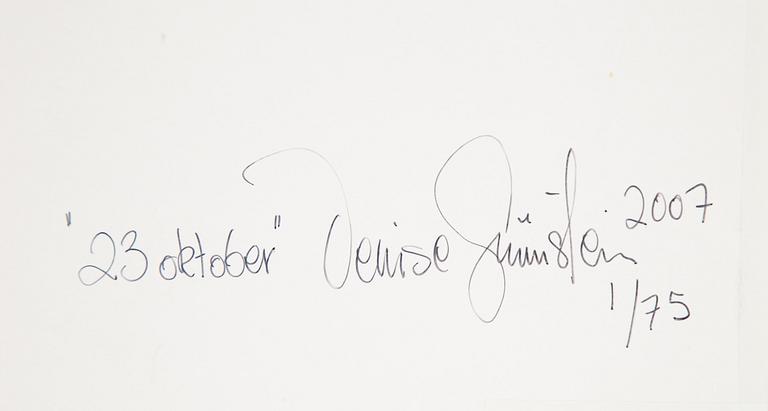 "23 oktober" Denise Grünstein 2007
1/75